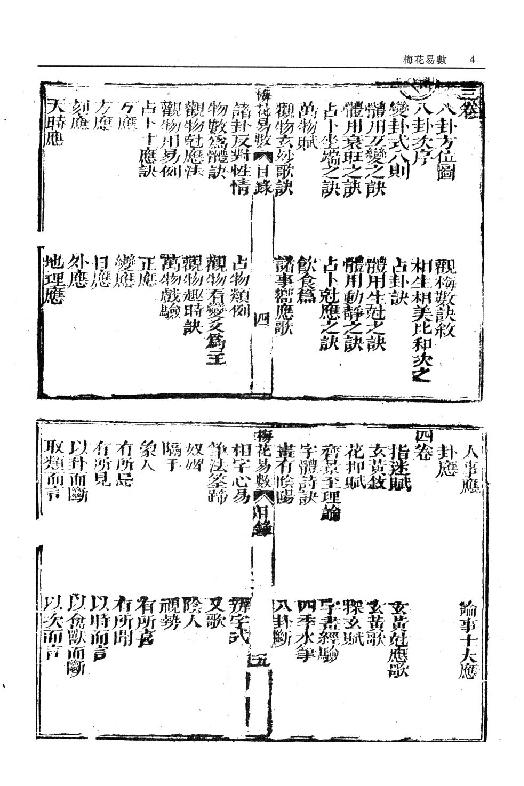 梅花易數 4
三卷
八卦方位圖 觀梅數訣敘
八卦次序 相生相美比和次之
變卦式八則 占卦訣
體用互變之訣 體用生尅之訣
體用衰旺之訣 體用動靜之訣
占卜坐端之訣 占卜尅應之訣
萬物賦 飲食篇
觀物玄妙歌訣 諸事響應歌
梅花易數 目錄 四
諸卦反對性情 占物類例
物數爲體訣 觀物看變爻爲主
觀物尅應法 觀物趣時訣
觀物用易例 萬物戲驗
占卜十應訣 正應
互應 變應
方應 日應
刻應 外應
天時應 地理應
人事應 論事十大應
卦應
四卷
指迷賦 玄黃尅應歌
玄黃敘 玄黃歌
花押賦 探玄賦
齊景至理論 字畫經驗
字體詩訣 四季水筆
畫有陰陽 八卦斷
梅花易數 目錄 五
相字心易 辨字式
筆法筌蹄 又歌
奴婢 陰人
隔手 視勢
象人 有所喜
有所 有所聞
有所見 以時而言
以卦而斷 以禽獸而斷
取類而言 以次而言